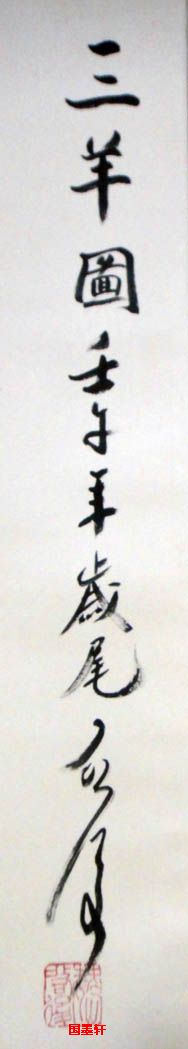 三羊圖壬午年歲尾
国墨轩